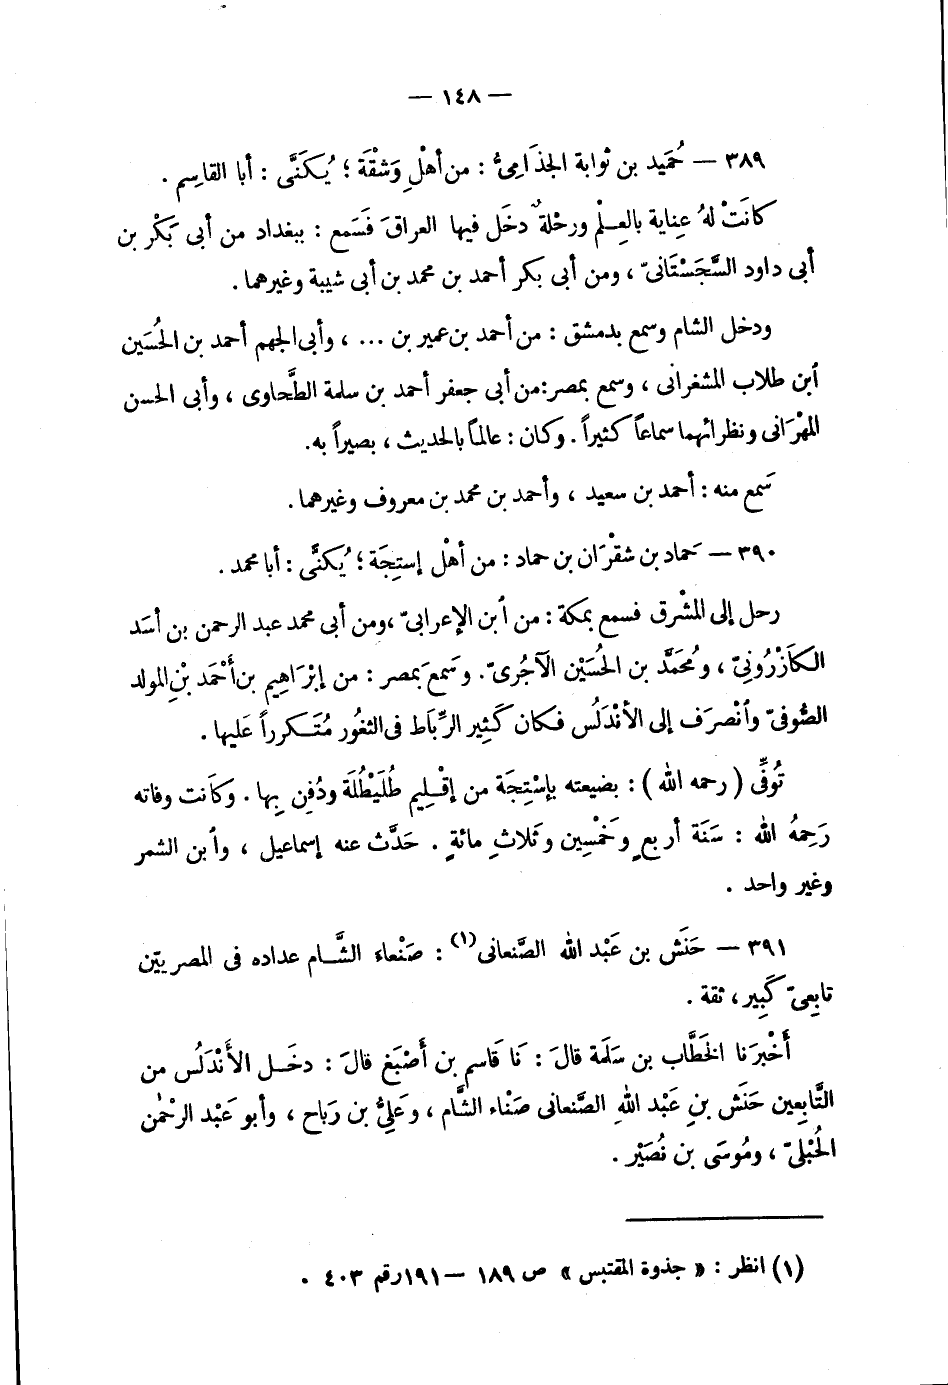 — ١٤٨ —
٣٨٩ — حُمَيد بن ثوابة الجذَامِىُّ : من أهْلِ وَشْقَة ؛ يُكَنَّى : أبا القاسِم .
كانَتْ لهُ عِناية بالعِلْم ورحْلةٌ دخَل فيها العراقَ فَسَمع : ببغداد من أبى بَكْر بن
أبى داود السَّجَسْتَانىّ ، ومن أبى بكر أحمد بن محمد بن أبى شيبة وغيرهما .
ودخل الشام وسمع بدمشق : من أحمد بن عمير بن ... ، وأبى الجهم أحمد بن الحُسَين
ٱبن طلاب المشغرانى ، وسمع بمصر: من أبى جعفر أحمد بن سلمة الطَّحاوى ، وأبى الحسن
المهْرَانى ونظرائهما سماعاً كثيراً . وكان : عالماً بالحديث ، بصيراً به.
سَمع منه : أحمد بن سعيد ، وأحمد بن محمد بن معروف وغيرهما .
٣٩٠ — حَماد بن شقْرَان بن حماد : من أهْل إستِجَة ؛ يُكنَّى : أبا محمد .
رحل إلى المشْرق فسمع بمكة : من ٱبن الإعرابىّ ، ومن أبى محمد عبد الرحمن بن أسَد
الكَازْرُونِىّ ، ومُحَمَّد بن الحُسَيْن الآجُرىّ . وسَمعَ بَمصر : من إبْرَاهِيم بن أَحْمَد بْنِ المولد
الصُّوفىّ وٱنْصرَف إلى الأنْدَلُس فكان كَثِير الرِّبَاط فى الثغُور مُتَكرراً عَليها .
تُوفِّى ( رحمه الله ) : بضيعته بإسْتِجَة من إقْلِيم طُلَيْطُلَة ودُفِن بِها . وكَانت وفاته
رَحِمهُ الله : سَنَة أربعٍ وخَمْسِين وثَلاثِ مائةٍ . حَدَّث عنه إسماعيل ، وٱبن الشمر
وغير واحد .
٣٩١ — حَنَش بن عَبْد الله الصَّنعانى (١) : صَنْعاء الشَّام عداده فى المصريّين
تابِعىّ كَبِير ، ثقة .
أَخْبرَنا الخَطَّاب بن سَلَمة قالَ : نَا قَاسم بن أَصْبَغ قالَ : دخَل الأَنْدَلُس من
التَّابِعين حَنَش بنِ عَبْد اللهِ الصَّنعانى صَنْاء الشَّام ، وعَلِىُّ بن رَباح ، وأبو عَبْد الرحْمٰن
الحُبْلىّ ، ومُوسَى بن نُصَيْر .
(١) انظر : « جذوة المقتبس » ص ١٨٩ — ١٩١ رقم ٤٠٣ .